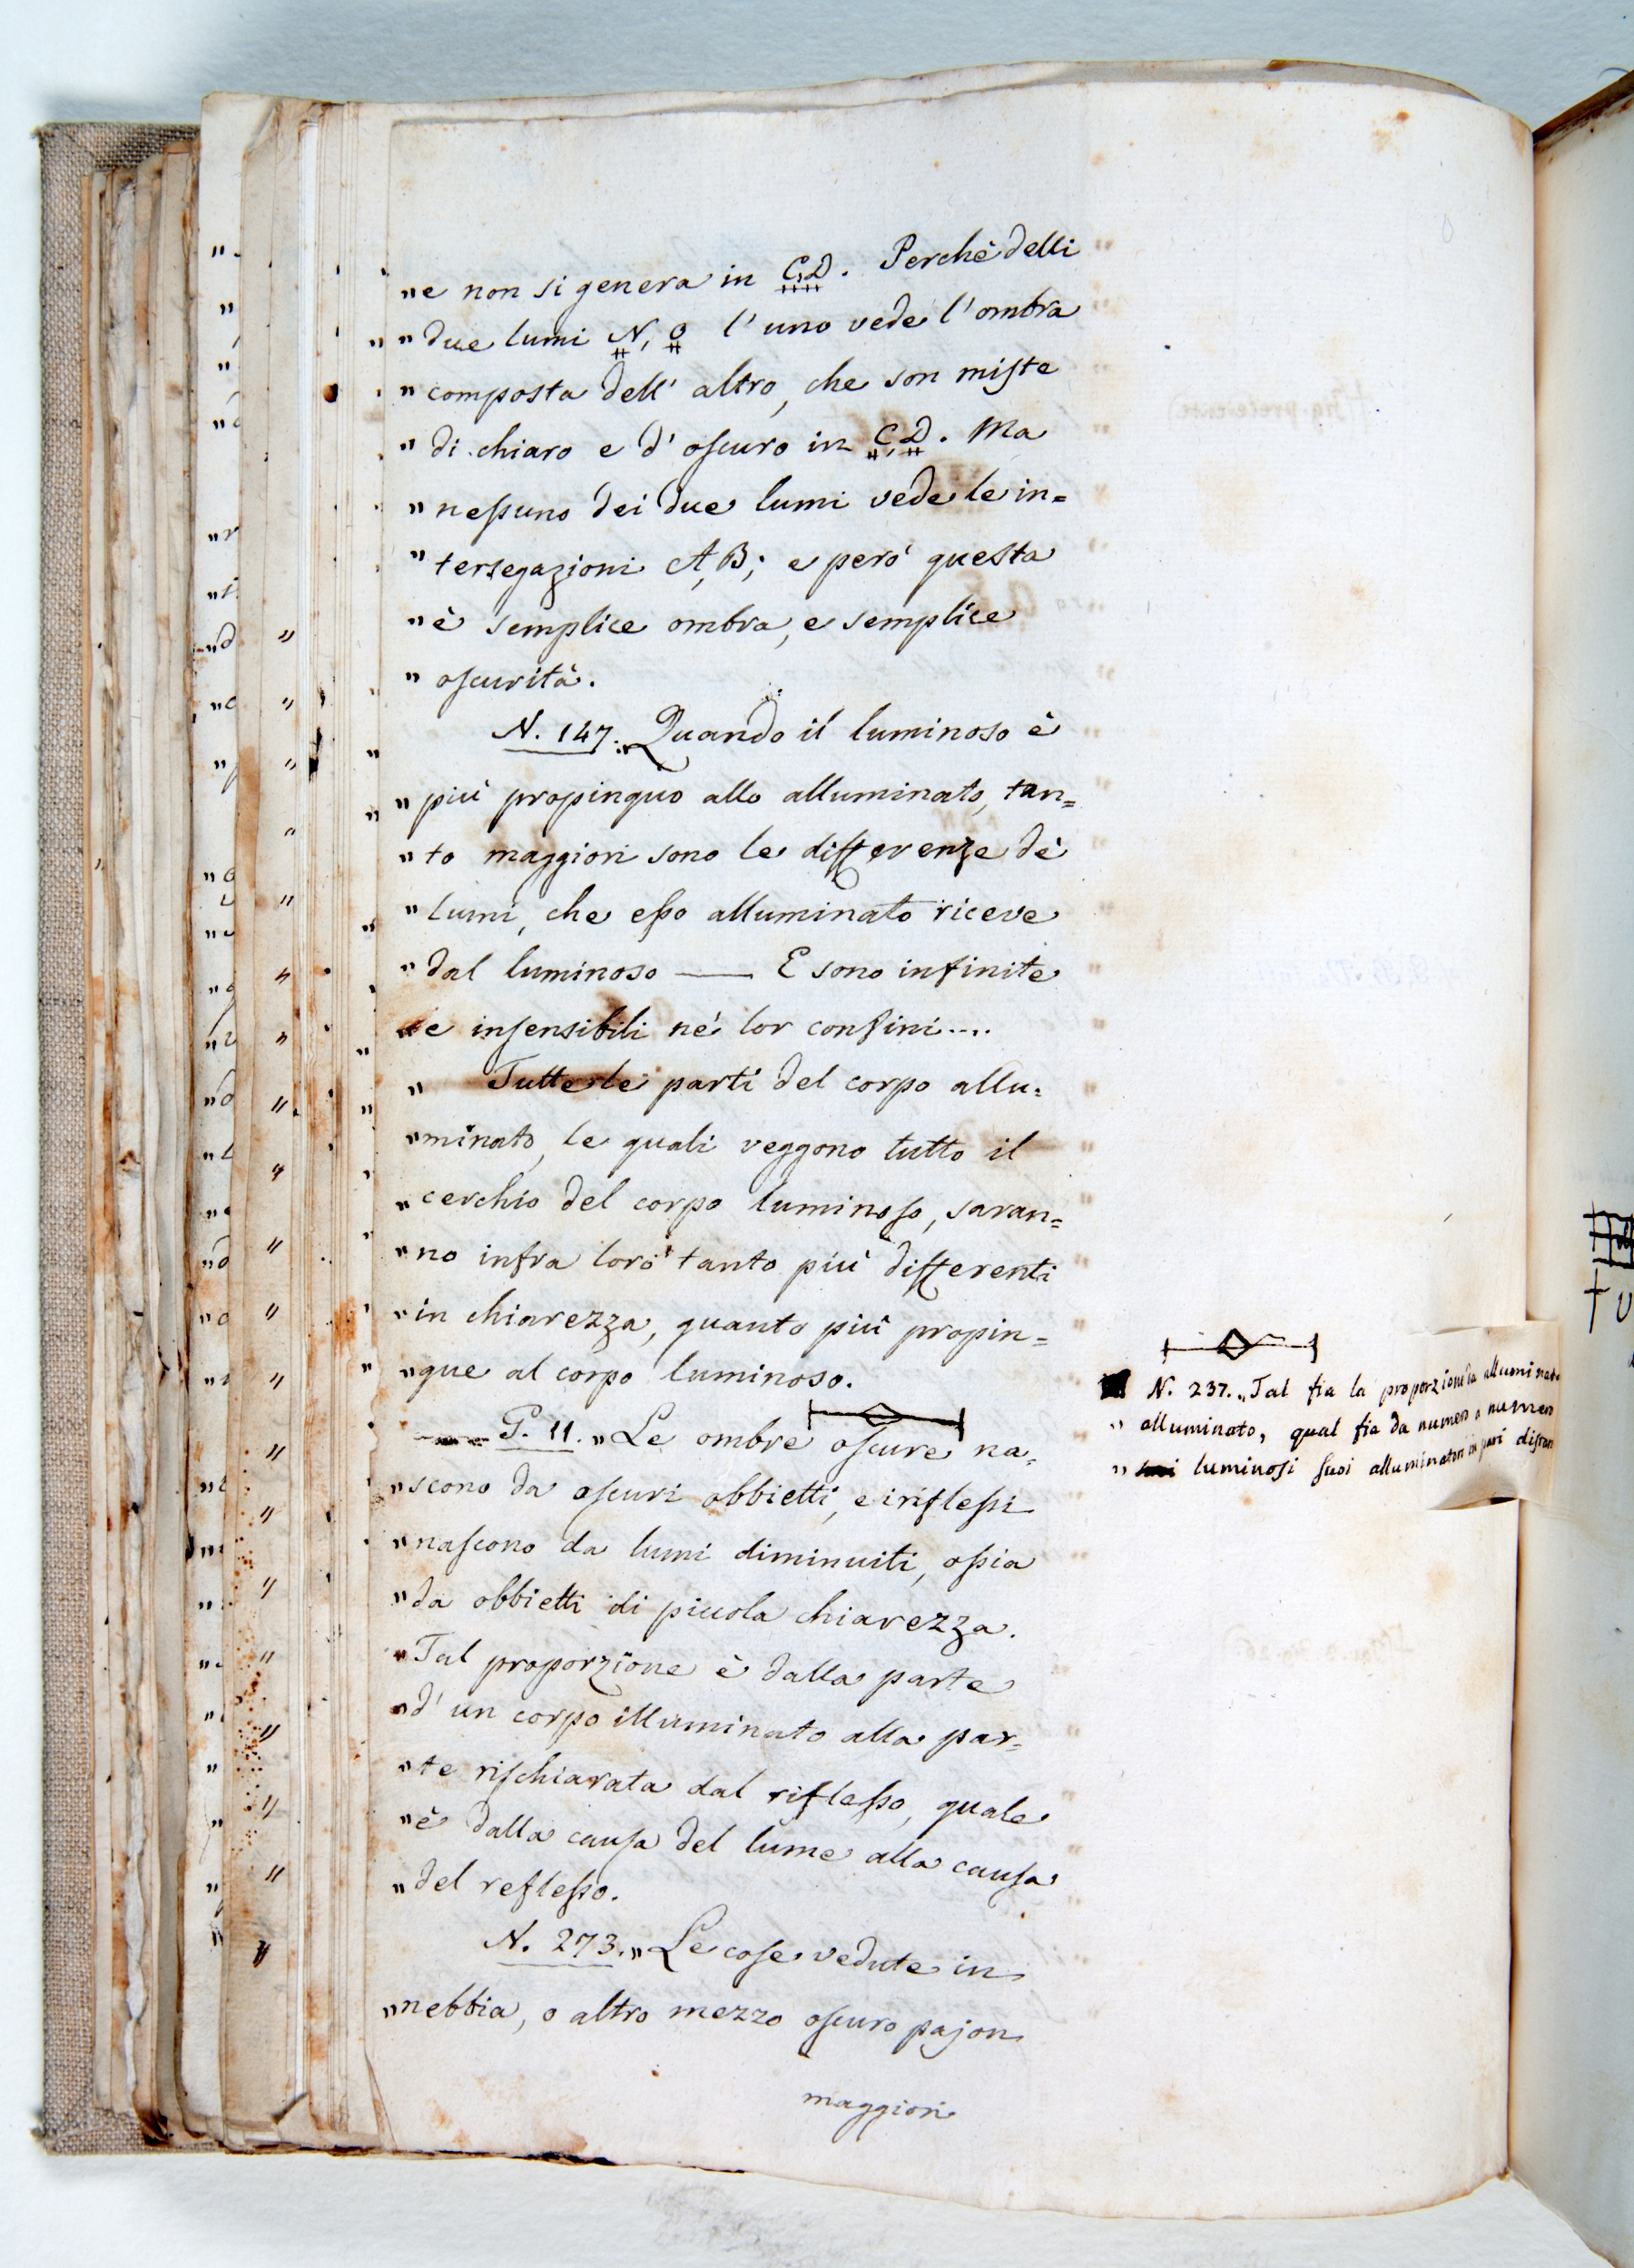 "e non si genera in C,D. Perchè delli
"due lumi N, O l'uno vede l'ombra
"composta dell'altro, che son miste
"di chiaro e d'oscuro in C,D. Ma
"nessuno dei due lumi vede le in=
"tersegazioni A,B; e però questa
"è semplice ombra, e semplice
"oscurità.
N. 147. "Quando il luminoso è
"più propinquo allo alluminato, tan=
"to maggiori sono le differenze de'
"lumi, che esso alluminato riceve
"dal luminoso — E sono infinite
"e insensibili ne' lor confini....
" Tutte le parti del corpo allu=
"minato, le quali veggono tutto il
"cerchio del corpo luminoso, saran=
"no infra loro tanto più differenti
"in chiarezza, quanto più propin=
"que al corpo luminoso.
G. 11. "Le ombre oscure na=
"scono da oscuri obbietti, e i riflessi
"nascono da lumi diminuiti, ossia
"da obbietti di piccola chiarezza.
"Tal proporzione è dalla parte
"d'un corpo illuminato alla par=
"te rischiarata dal riflesso, quale
"è dalla causa del lume alla causa
"del reflesso.
N. 273. "Le cose vedute in
"nebbia, o altro mezzo oscuro pajon
maggiori
N. 237. "Tal fia la proporzione
" alluminato, qual fia da numero a numero
" luminosi suoi alluminatori in pari distan